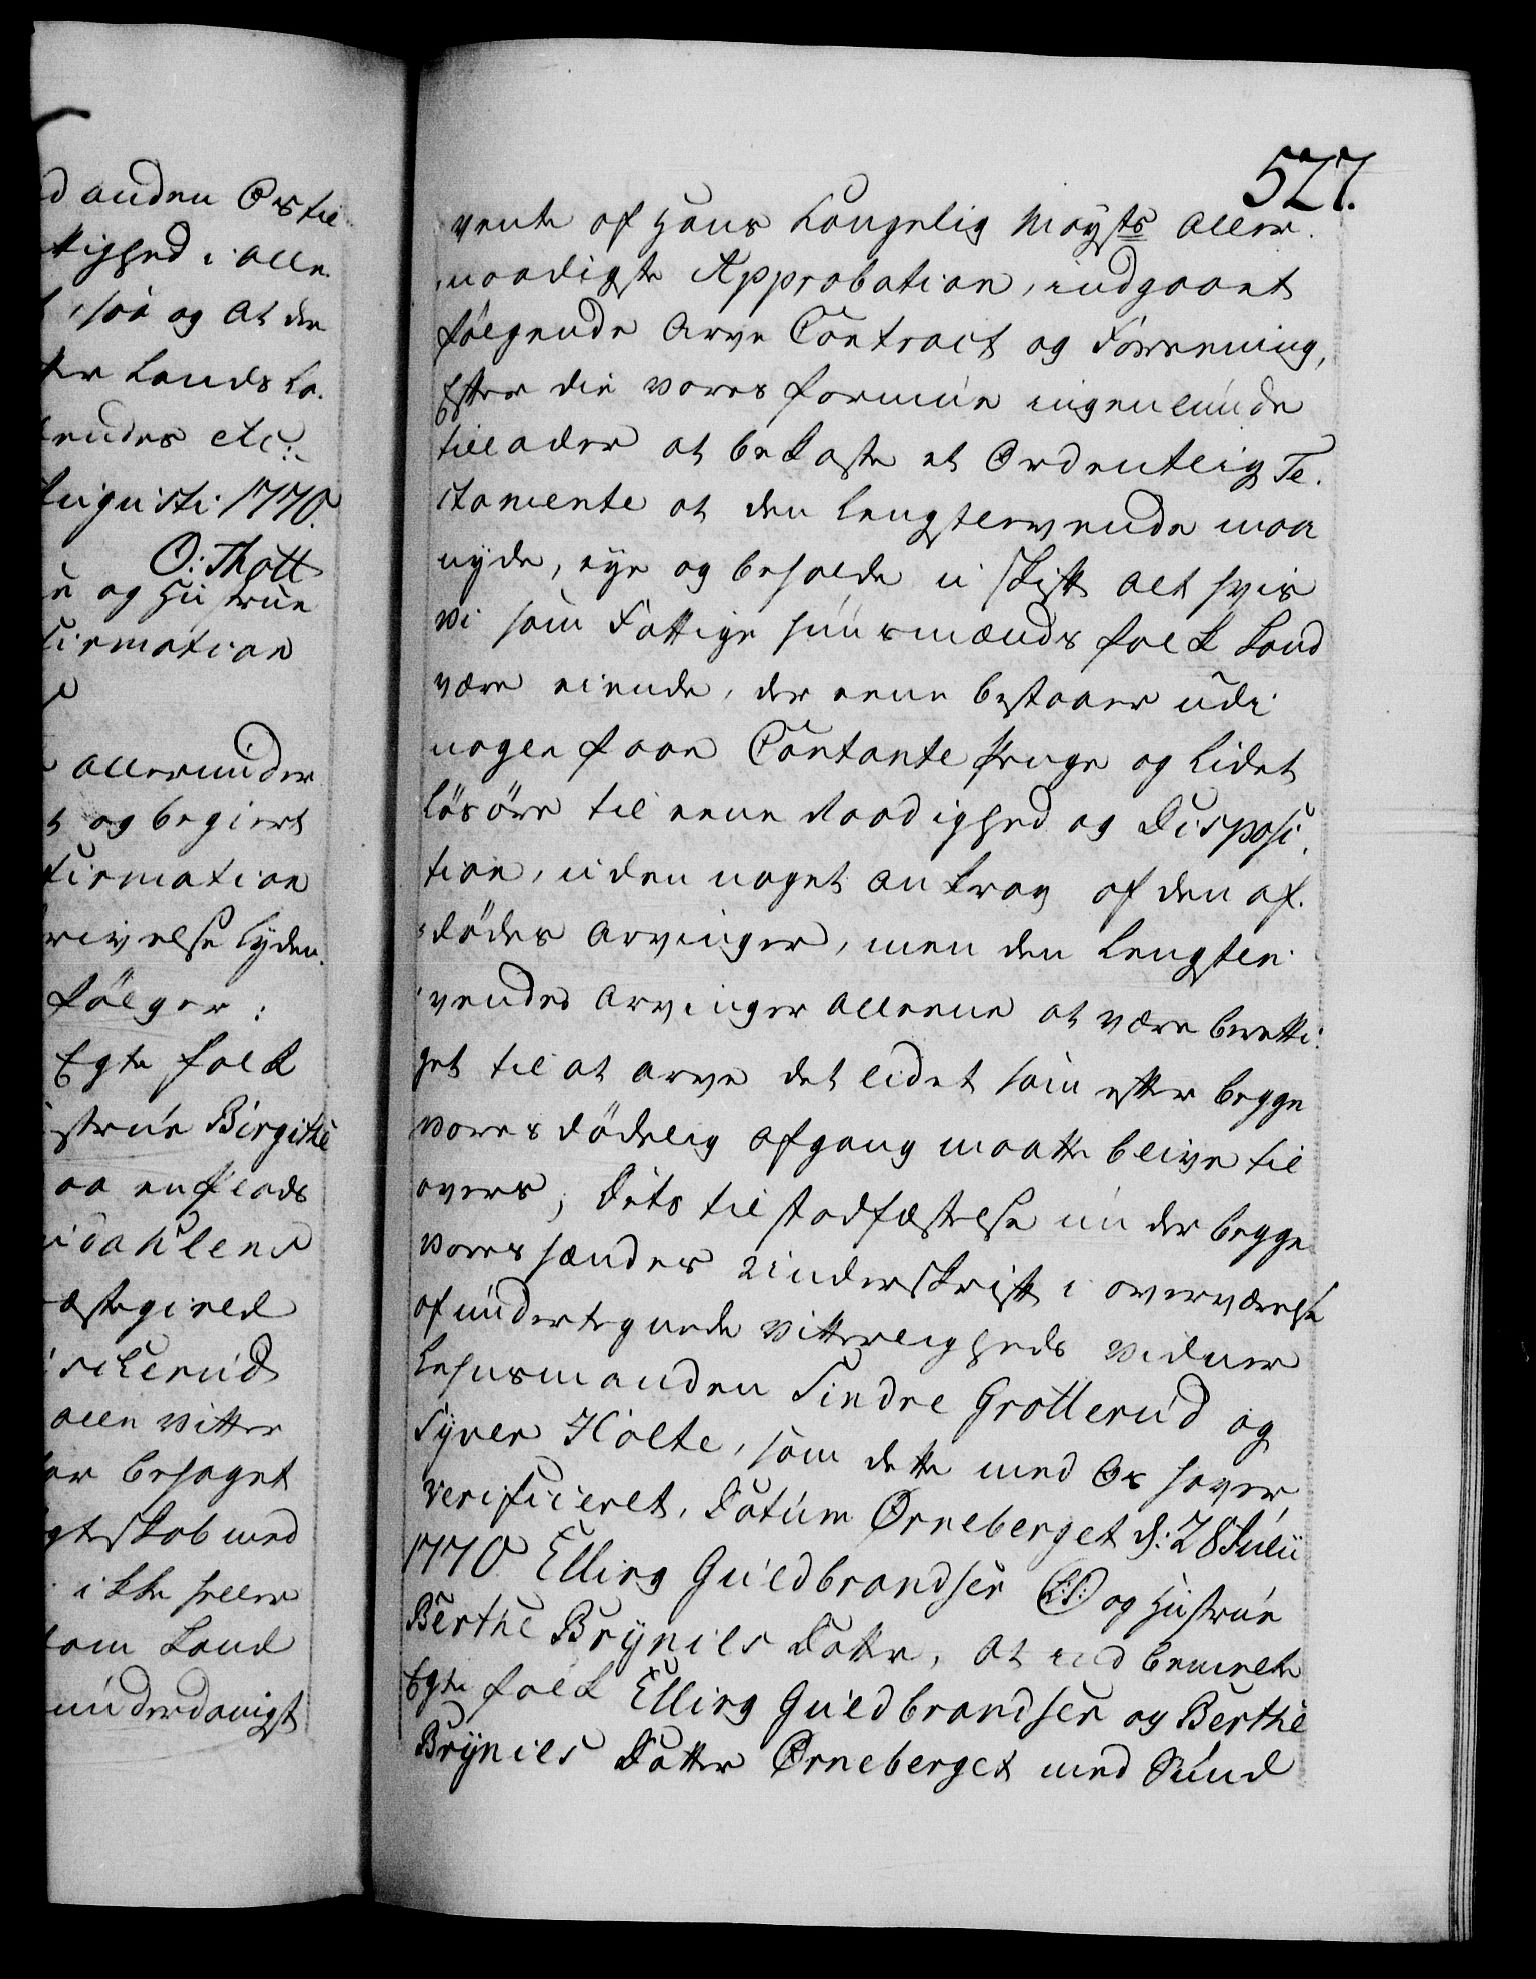 d anden Os til
tighed i alle
saa og at der
ter Lands La.
endes etc:
Augusti 1770.
O: Thott
og Hustrue
firmation
allerunder
og begiert
firmation
rivelse lyden
følger:
Egte folk
strue Birgithe
aa en plads
idahlens
æstegield
ollerud
alle vitter
ar behaget
gteskab med
ikke heller
som Land
underdanigst
527.
vente af Hans Kongelig Mayts Aller.
naadigste Approbation, indgaaet
følgende Arve Contract og Foreening,
Efter die vores formue ingenlunde
tillader at bekoste et Ordentlig Te.
stamente at den Lengstlevende maa
nyde, eye og beholde u-skift alt hvis
vi som Fattige huusmænds folk kand
være eiende, der eene bestaaer udi
nogle faae Contante penge og lidet
løsøre til eene Raadighed og Disposi.
tion, uden noget ankrav af den af.
dødes Arvinger, men den Lengstle.
vendes Arvinger alleene at være beretti.
get til at arve det lidet som efter begge
vores dødelig afgang maatte blive til
overs, Dets til stadfæstelse under begge
vores hænders underskrift i overværelse
af undertegnede vitterligheds vidner
Lehnsmanden Sindre Grotterud og
Syver Holte, som dette med Os haver
verificieret, Datum Ørneberget d: 28 Julii
1770. Elling Guldbrandsen (L:S:) og Hustrue
Berthe Brynils Datter, At ved bemelte
Egte folk Elling Guldbrandsen og Berthe
Brynils Datter Ørneberget med Sund